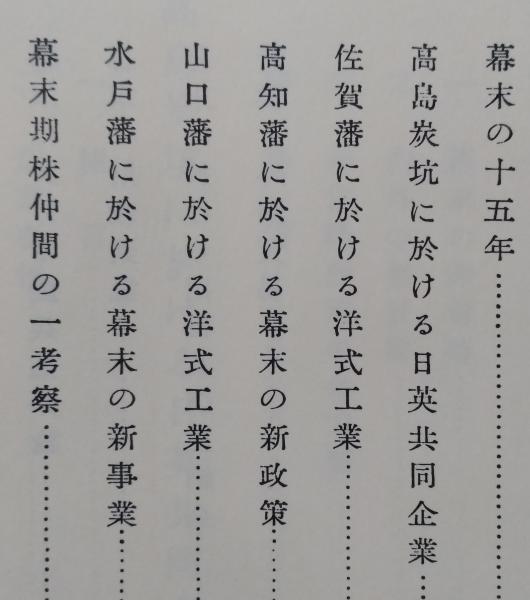 幕末の十五年……………………
高島炭坑に於ける日英共同企業…
佐賀藩に於ける洋式工業…………
高知藩に於ける幕末の新政策……
山口藩に於ける洋式工業…………
水戸藩に於ける幕末の新事業……
幕末期株仲間の一考察……………